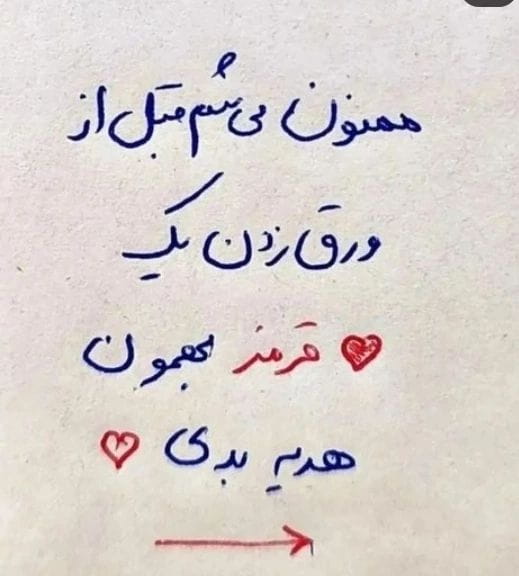 ممنون می‌شم قبل از
ورق زدن یک
❤ قرمز بهمون
هدیه بدی ♥
→